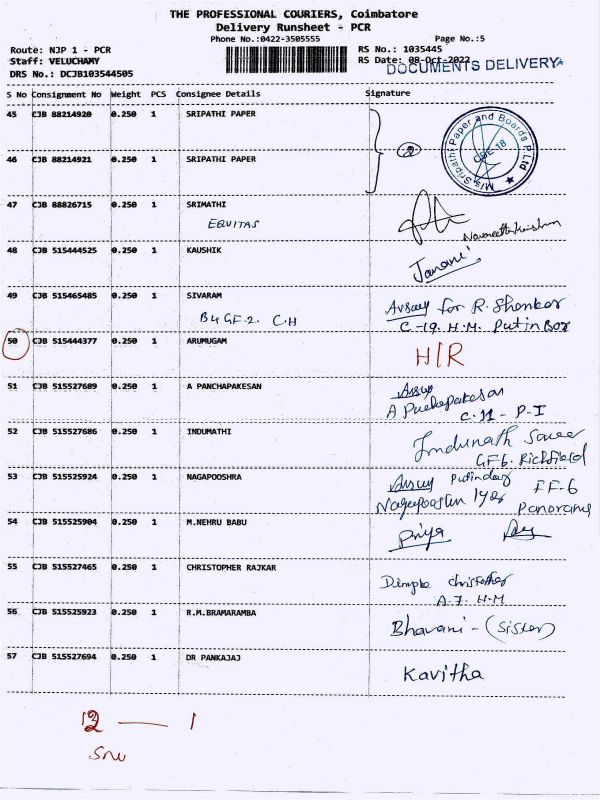 THE PROFESSIONAL COURIERS, Coimbatore
Delivery Runsheet - PCR
Phone No.:0422-3505555
Page No.:5
Route: NJP 1 - PCR
RS No.: 1035445
Staff: VELUCHAMY
RS Date: 08-Oct-2022
DOCUMENTS DELIVERY
DRS No.: DCJB103544505
S No Consignment No Weight PCS Consignee Details Signature
45 CJB 88214920 0.250 1 SRIPATHI PAPER
M/s. Sripathi Paper and Boards P Ltd
CBE-18
46 CJB 88214921 0.250 1 SRIPATHI PAPER
47 CJB 88826715 0.250 1 SRIMATHI
EQUITAS
48 CJB 515444525 0.250 1 KAUSHIK Janani
49 CJB 515465485 0.250 1 SIVARAM for R. Shankar
B4 GF-2. C.H C-19. H.M. Put in Box
50 CJB 515444377 0.250 1 ARUMUGAM H/R
51 CJB 515527689 0.250 1 A PANCHAPAKESAN
C.11 - P-I
52 CJB 515527686 0.250 1 INDUMATHI
GF6. Richfield
53 CJB 515525924 0.250 1 NAGAPOOSHRA
FF-6
54 CJB 515525904 0.250 1 M.NEHRU BABU Priya
55 CJB 515527465 0.250 1 CHRISTOPHER RAJKAR
Dimple christopher
A.7 H.M
56 CJB 515525923 0.250 1 R.M.BRAMARAMBA Bhavani - (Sister)
57 CJB 515527694 0.250 1 DR PANKAJAJ Kavitha
12 — 1